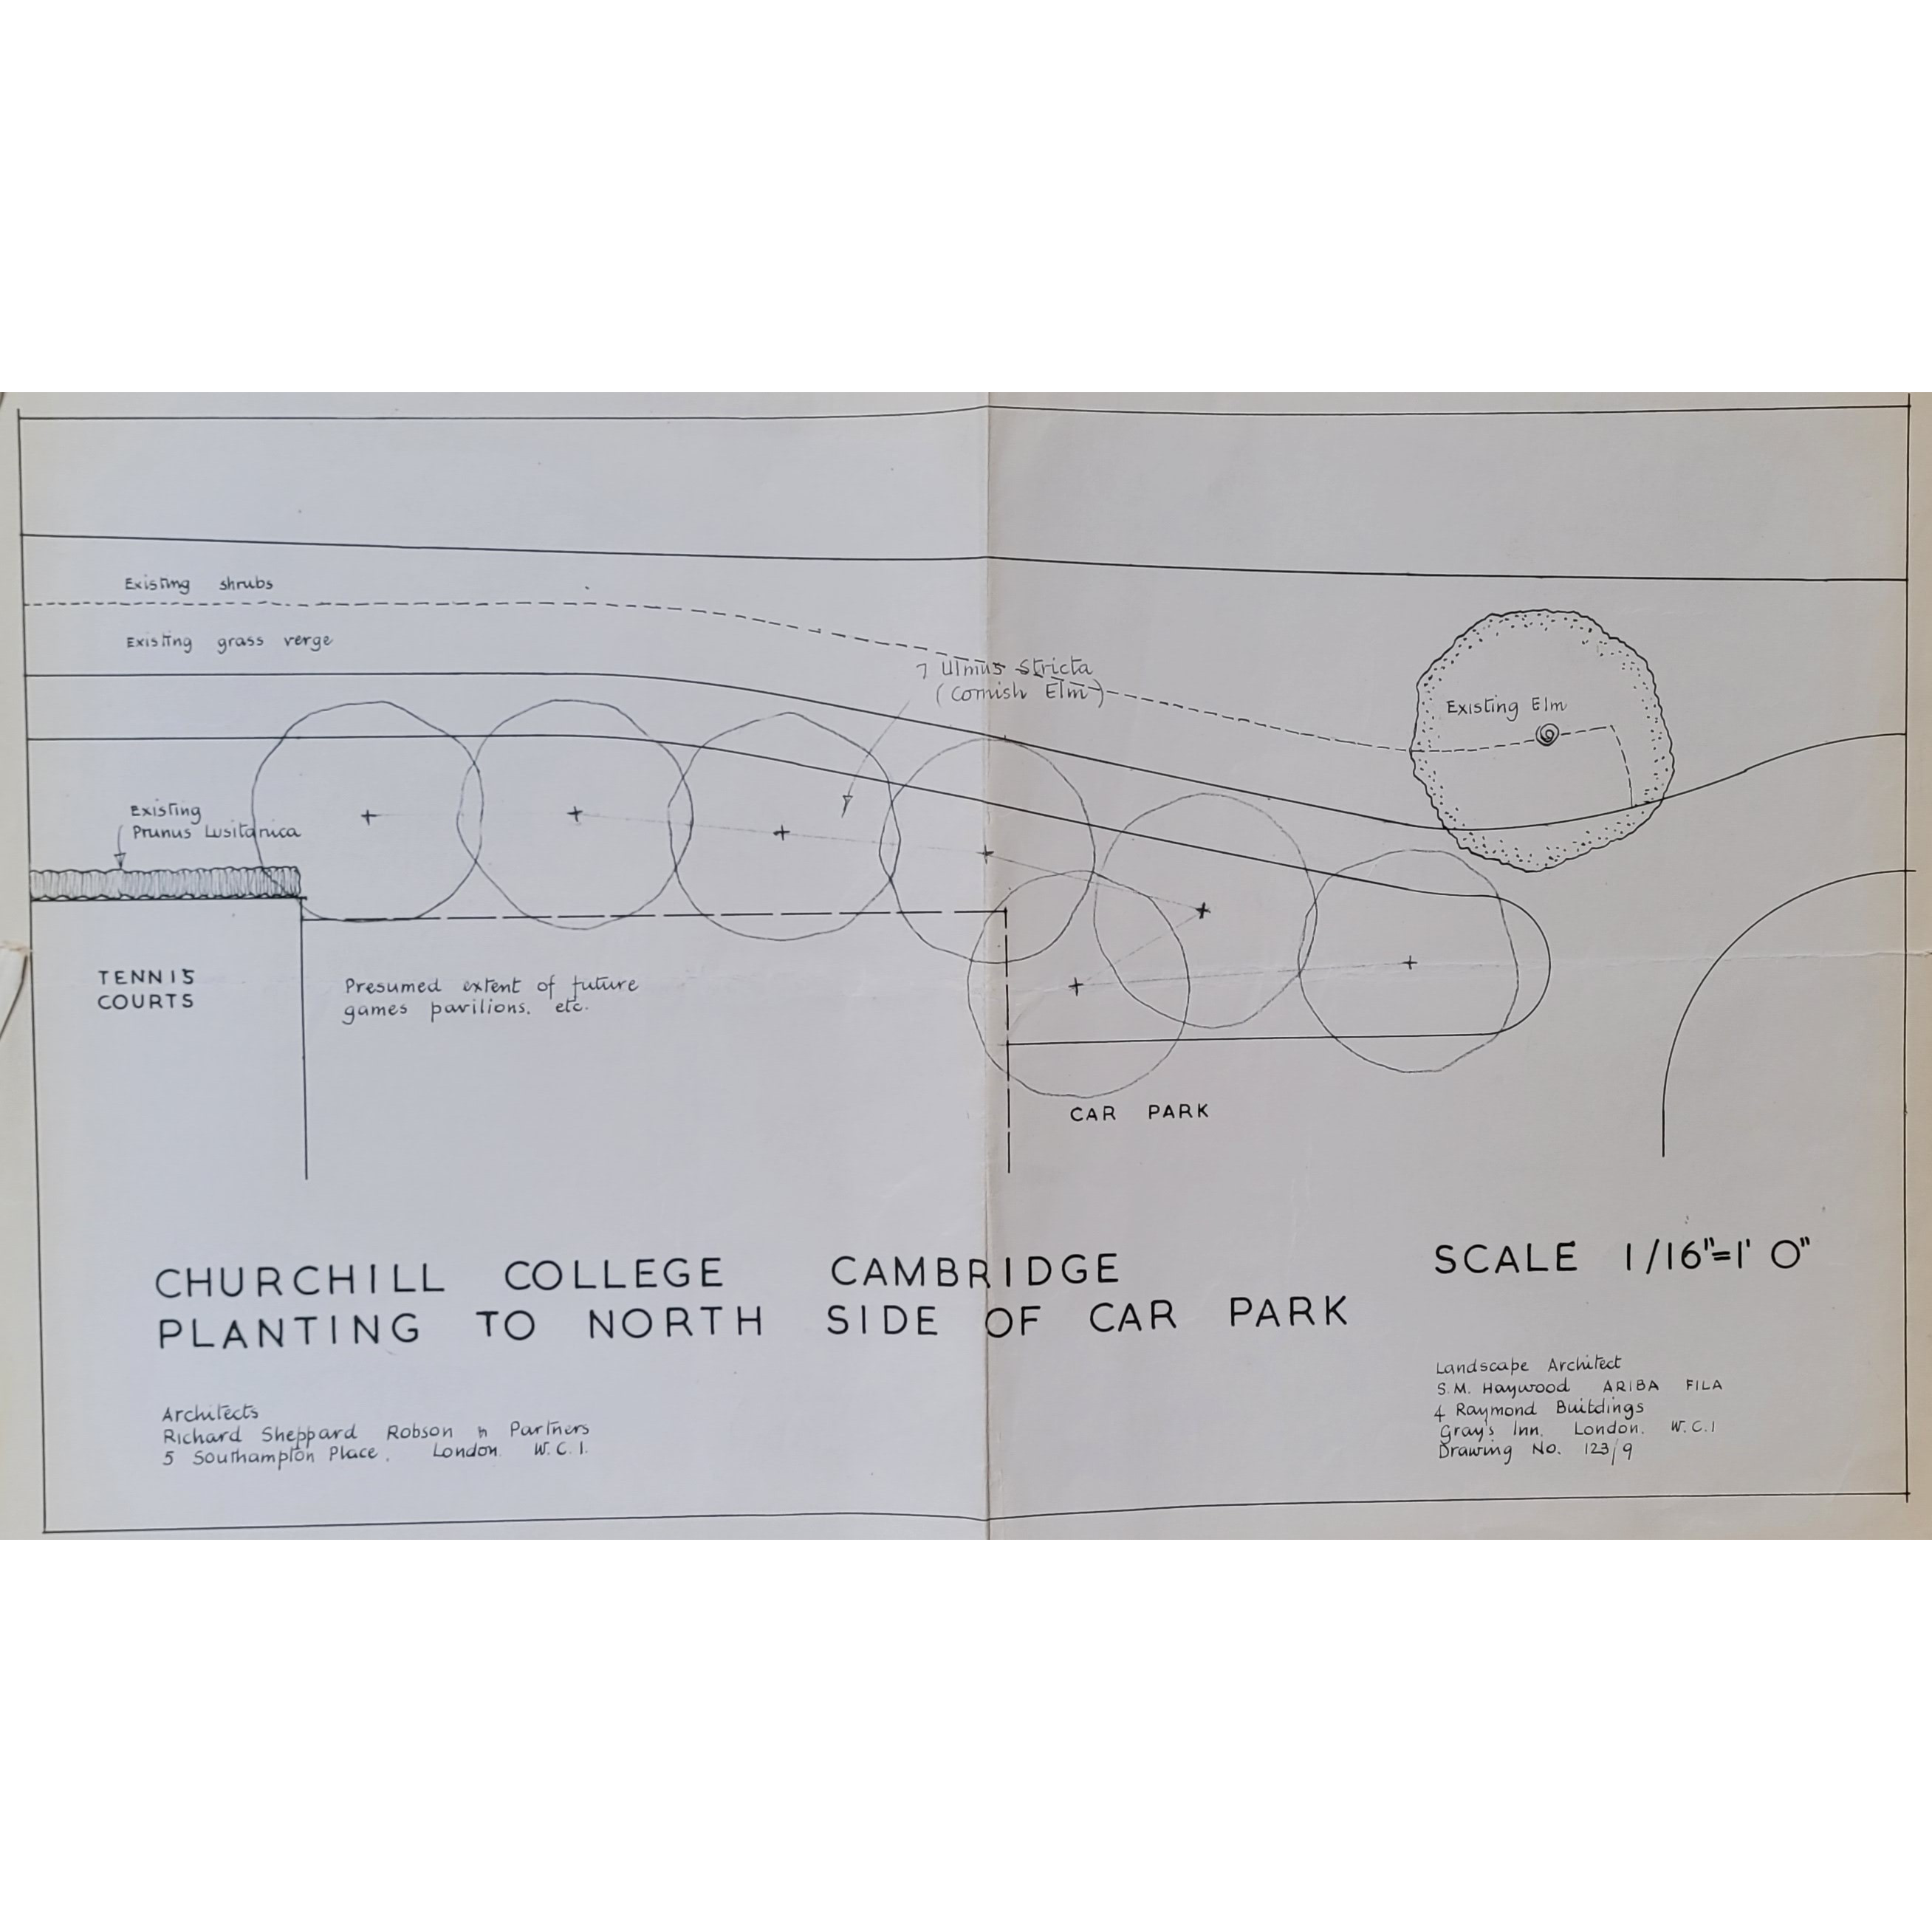 Existing shrubs
Existing grass verge
7 Ulmus Stricta
(Cornish Elm)
Existing Elm
Existing
Prunus Lusitanica
TENNIS
COURTS
Presumed extent of future
games pavilions. etc.
CAR PARK
CHURCHILL COLLEGE CAMBRIDGE
PLANTING TO NORTH SIDE OF CAR PARK
SCALE 1/16"=1' 0"
Architects
Richard Sheppard Robson & Partners
5 Southampton Place, London W.C.1.
Landscape Architect
S.M. Haywood ARIBA FILA
4 Raymond Buildings
Gray's Inn. London. W.C.1
Drawing No. 123/9